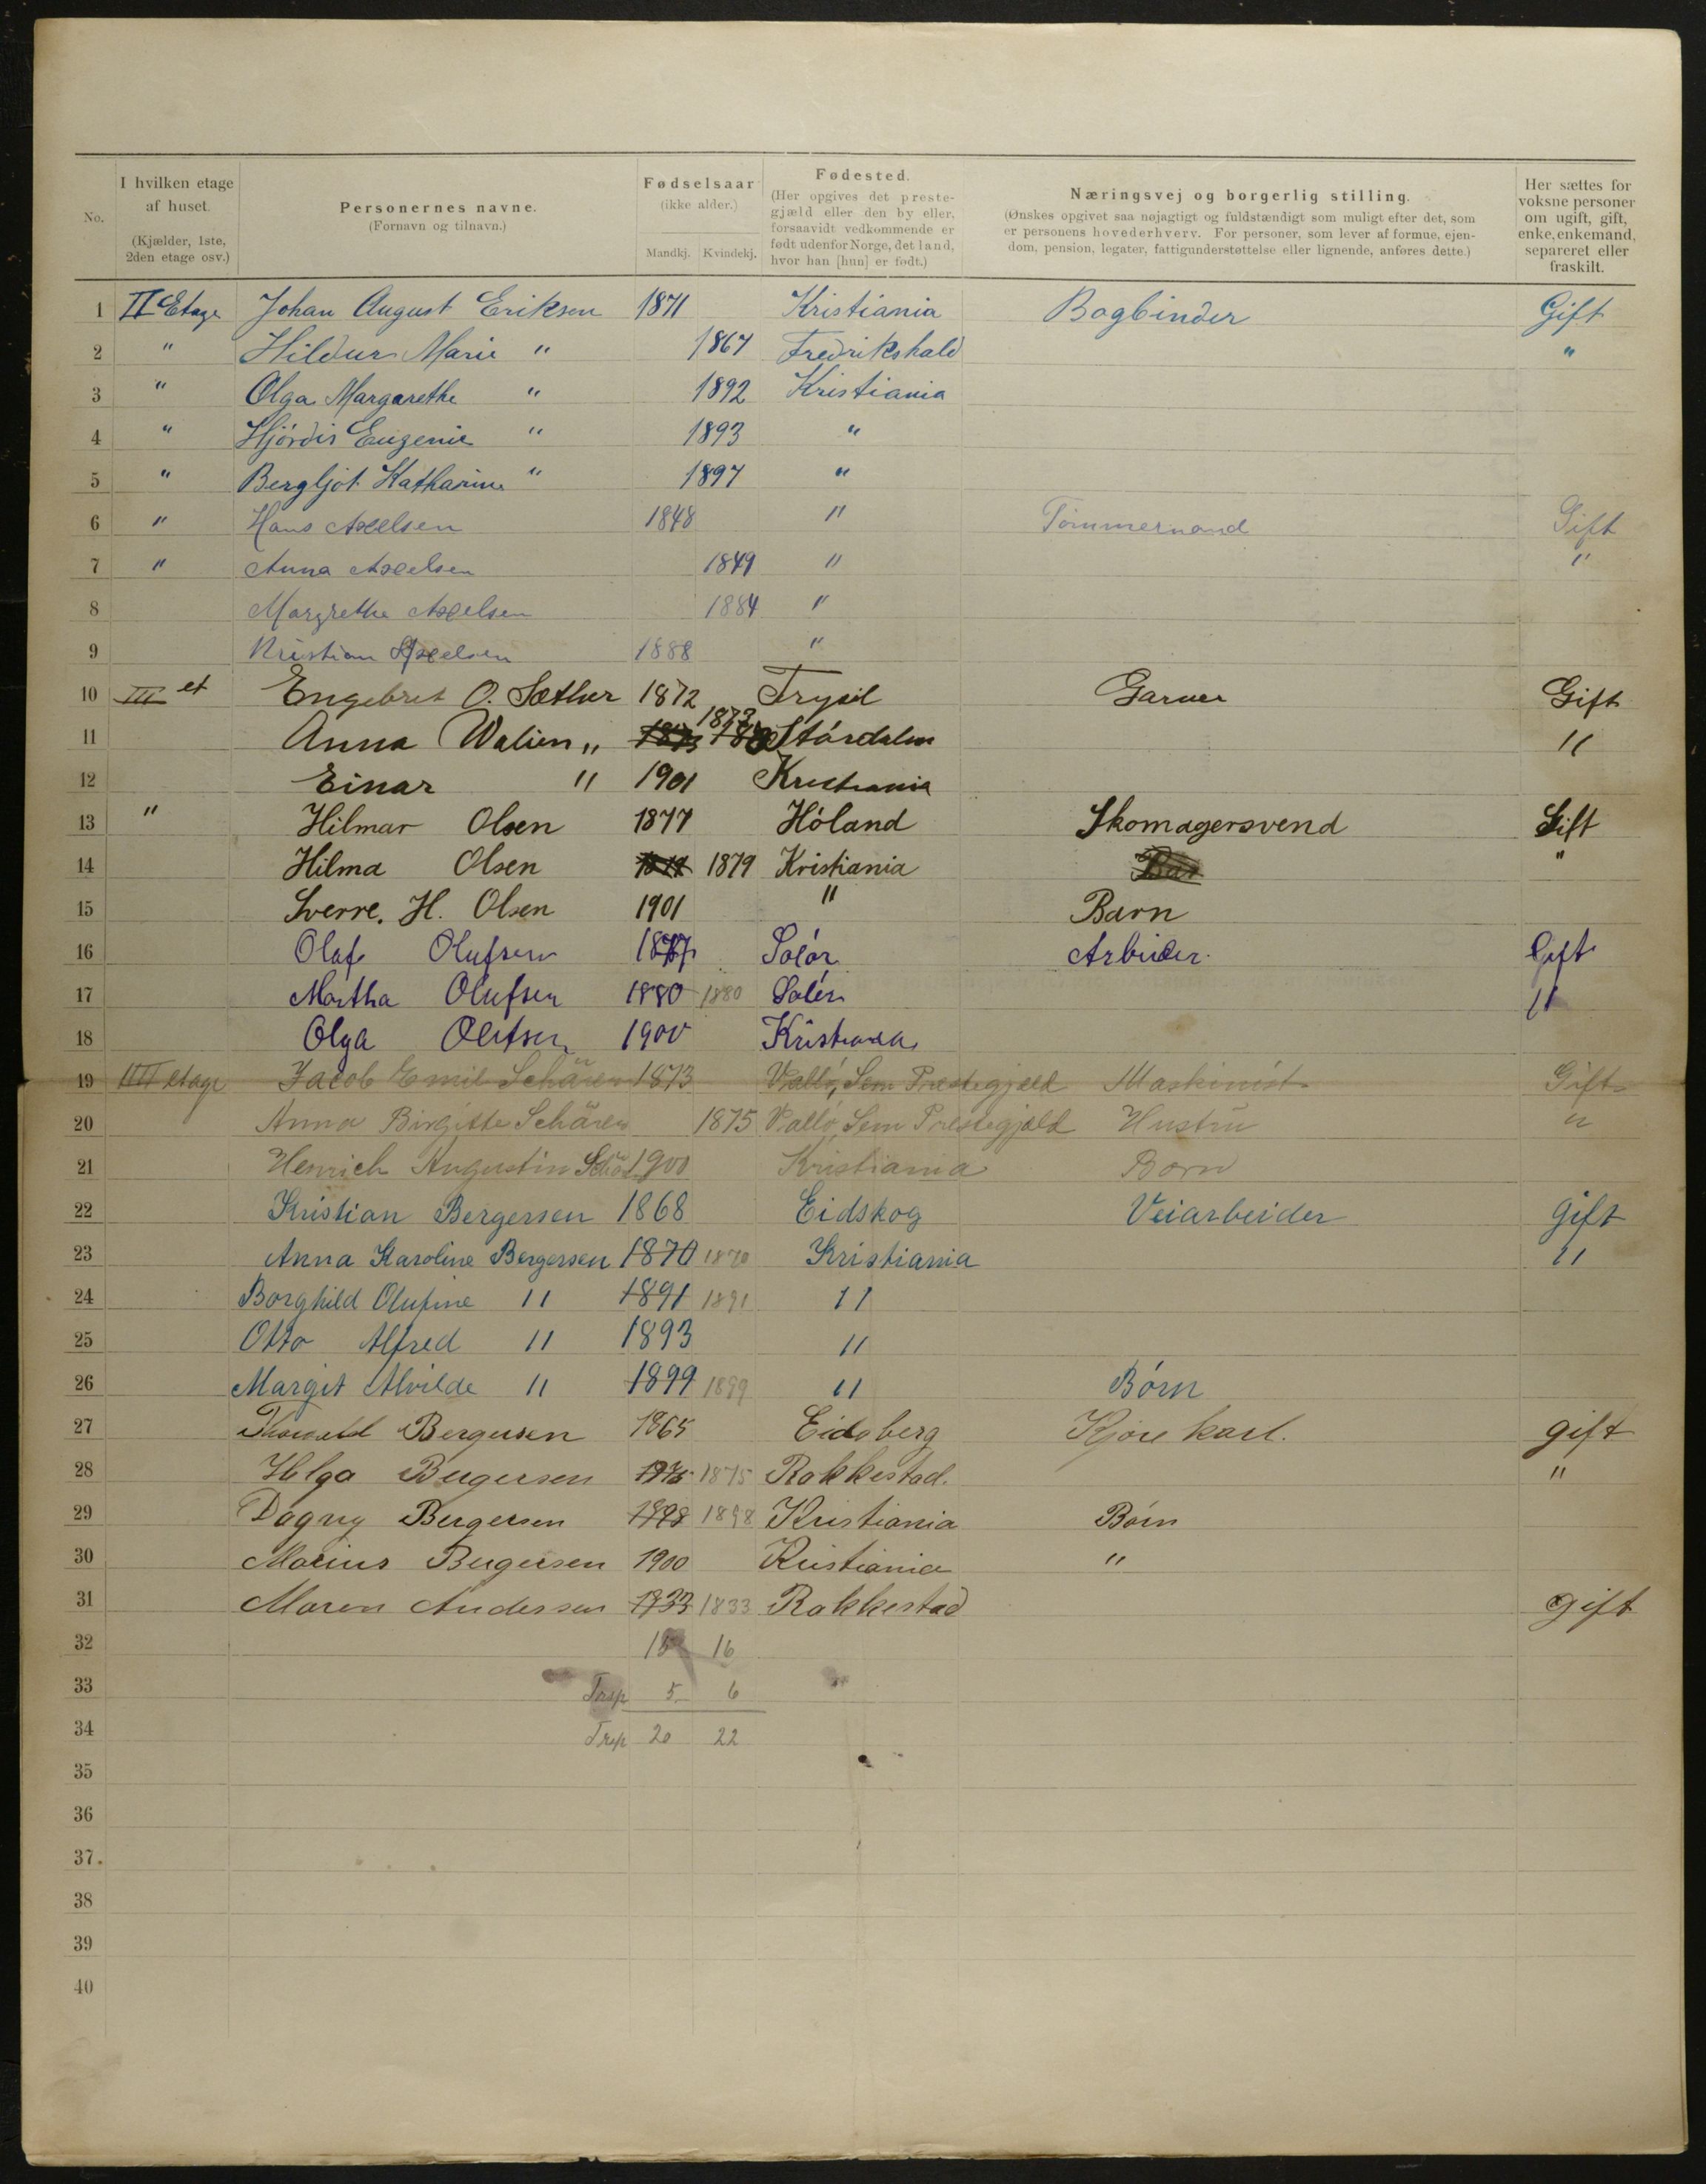 No.
I hvilken etage af huset. (Kjælder, 1ste, 2den etage osv.)
Personernes navne. (Fornavn og tilnavn.)
Fødselsaar (ikke alder.) Mandkj. Kvindekj.
Fødested. (Her opgives det prestegjæld eller den by eller, forsaavidt vedkommende er født udenfor Norge, det land, hvor han [hun] er født.)
Næringsvej og borgerlig stilling. (Ønskes opgivet saa nøjagtigt og fuldstændigt som muligt efter det, som er personens hovederhverv. For personer, som lever af formue, ejendom, pension, legater, fattigunderstøttelse eller lignende, anføres dette.)
Her sættes for voksne personer om ugift, gift, enke, enkemand, separeret eller fraskilt.
1 II Etage Johan August Eriksen 1871 Kristiania Bogbinder Gift
2 " Hildur Marie " 1867 Fredrikshald "
3 " Olga Margarethe " 1892 Kristiania
4 " Hjördis Eugenie " 1893 "
5 " Bergljot Katharine " 1897 "
6 " Hans Axelsen 1848 " Tömmermand Gift
7 " Anna Axelsen 1849 " "
8 Margrethe Axelsen 1884 "
9 Kristian Axelsen 1888 "
10 III et Engebret O. Sæther 1872 Trysil Garver Gift
11 Anna Walien " 1873 Stórdalen "
12 Einar " 1901 Kristiania
13 " Hilmar Olsen 1877 Hóland Skomagersvend Gift
14 Hilma Olsen 1879 Kristiania "
15 Sverre. H. Olsen 1901 " Barn
16 Olaf Olufsen 1877 Solór Arbeider. Gift
17 Martha Olufsen 1880 1880 Solór "
18 Olga Olufsen 1900 Kristiania
19 IIII etage Jacob Emil Schären 1873 Valló, Sem Prestegjæld Maskinist Gift
20 Anna Birgitte Schären 1875 Valló, Sem Prestegjæld Hustru "
21 Henrich Augustin Schä 1900 Kristiania Barn
22 Kristian Bergersen 1868 Eidskog Veiarbeider gift
23 Anna Karoline Bergersen 1870 1870 Kristiania "
24 Borghild Olufine " 1891 1891 "
25 Otto Alfred " 1893 "
26 Margit Alvilde " 1899 1899 " Börn
27 Thorvald Bergersen 1865 Eidsberg Kjörekarl. gift
28 Helga Bergersen 1875 1875 Rakkestad. "
29 Dagny Bergersen 1898 1898 Kristiania Börn
30 Marius Bergersen 1900 Kristiania "
31 Maren Andersen 1833 1833 Rakkestad gift
32 15 16
33 5 6
34 20 22
35
36
37.
38
39
40